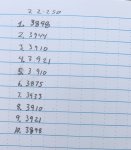 22-250
1. 3898
2. 3944
3. 3910
4. 3921
5. 3910
6. 3875
7. 3923
8. 3910
9. 3921
10. 3898